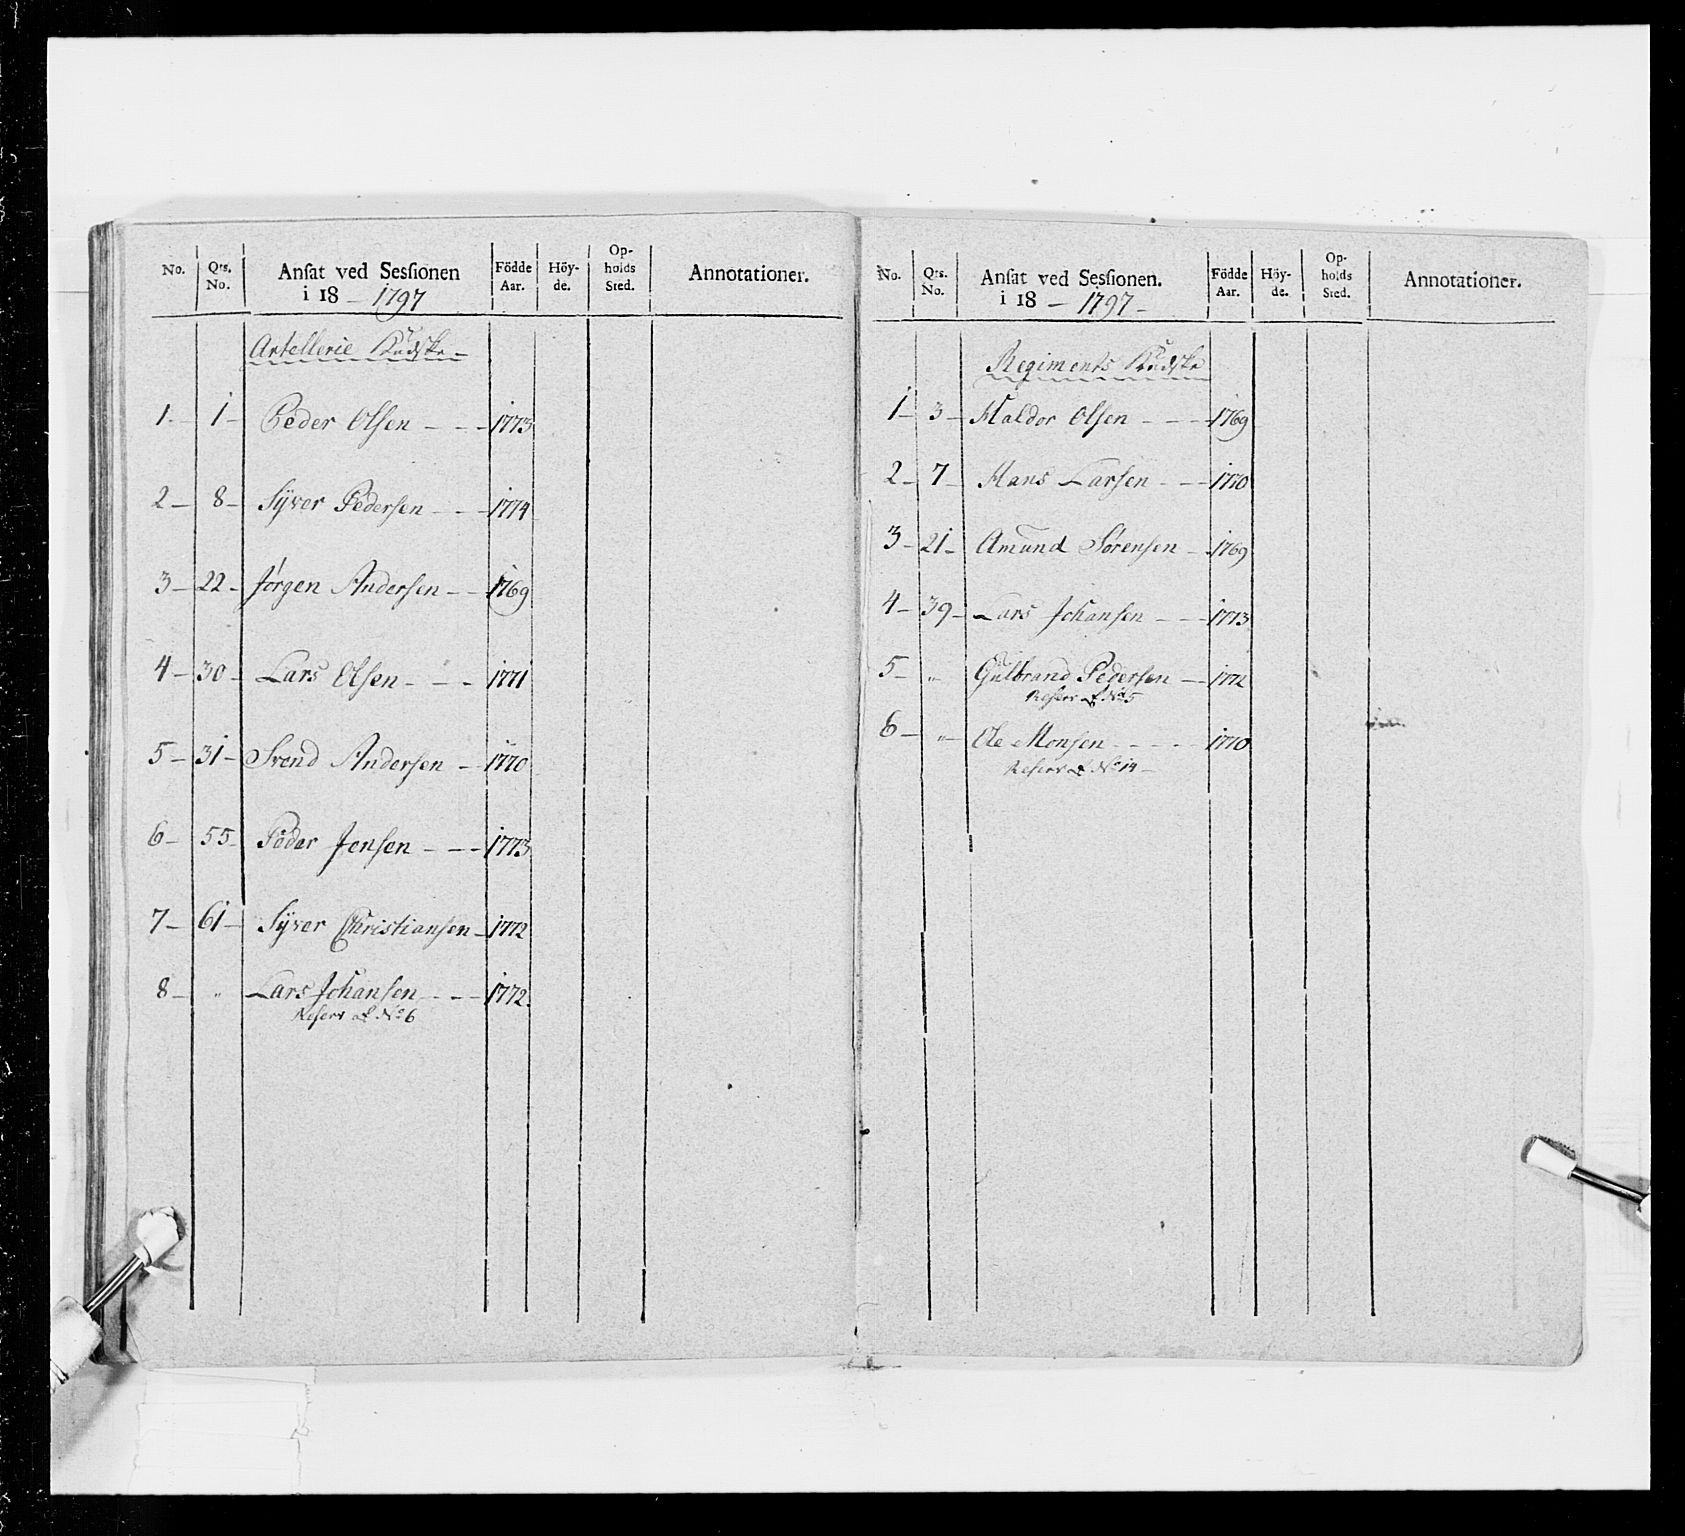 No. Qrs. No. Ansat ved Sessionen i 18 – 1797 Födde Aar. Höy-de. Op-holds Sted. Annotationer.
Artellerie Kudske –
1. – 1 – Peder Olsen – – – 1773
2 – 8 – Syver Pedersen – – – 1774
3 – 22 – Jørgen Andersen – – 1769
4 – 30 – Lars Olsen – – – 1771
5 – 31 – Svend Andersen – 1770
6 – 55 – Peder Jensen – – – 1773
7 – 61 – Syver Christiansen – 1772
8 – " Lars Johansen – – – 1772.
Reserv af No 6
No. Qrs. No. Ansat ved Sessionen. i 18 – 1797 – Födde Aar. Höy-de. Op-holds Sted. Annotationer.
Regiments Kudske
1 – 3 – Haldor Olsen – – – 1769
2 – 7 – Hans Larsen – – – 1770
3 – 21 – Amund Sørensen – 1769
4 – 39 – Lars Johansen – – – 1773
5 – " Gulbrand Pedersen – 1772
Reserv af No 5
6 – " – Ole Monsen – – – – 1770
Reserv af No 14 –